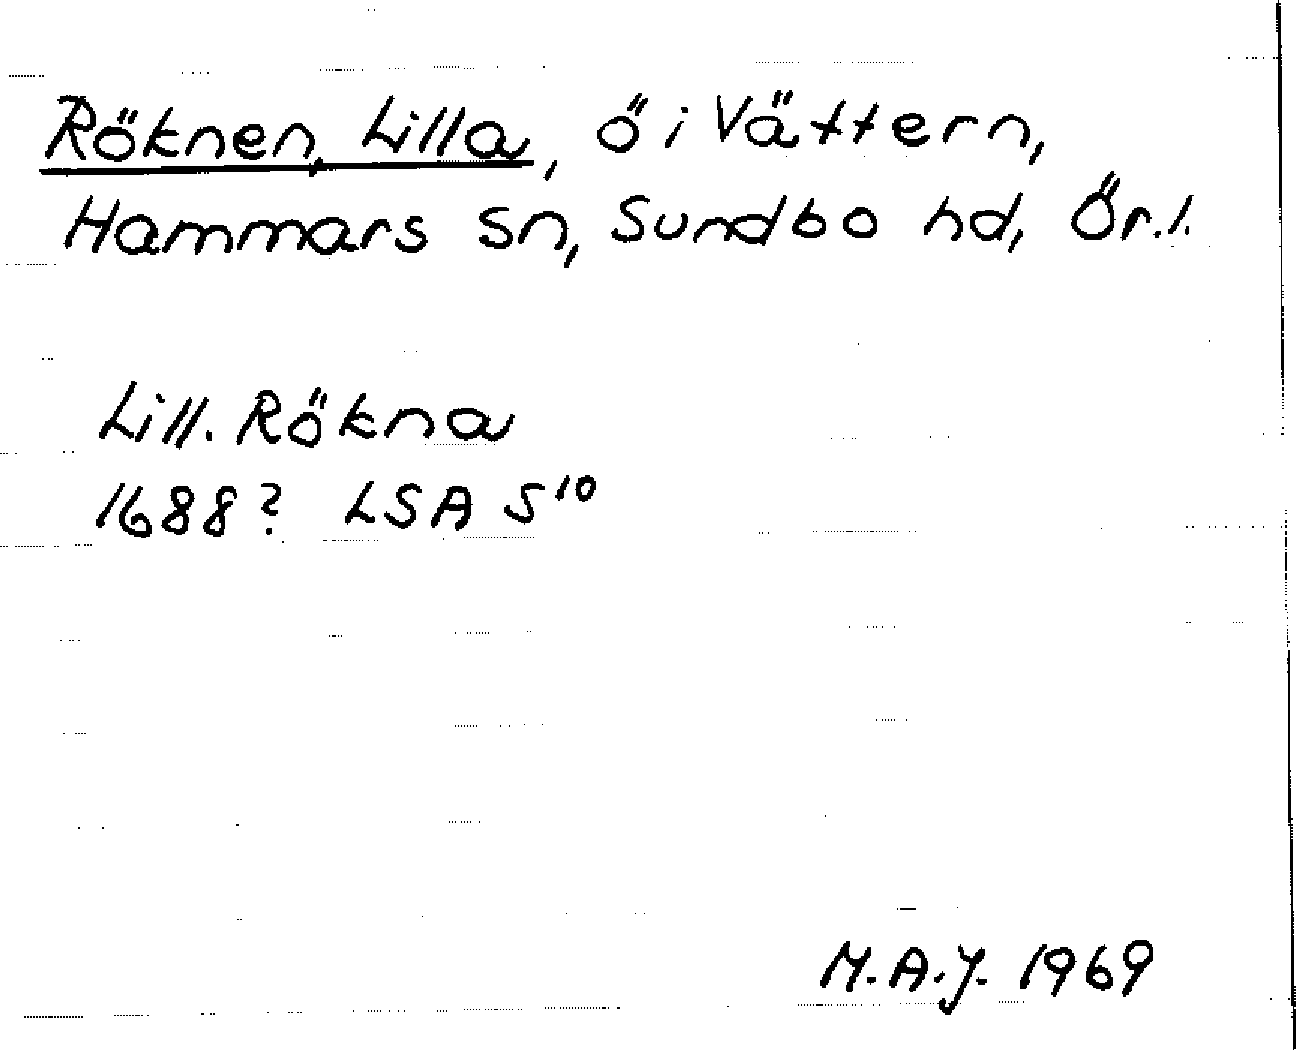 Röknen, Lilla, ö i Vättern,
Hammars sn, Sundbo hd, Ör.l.
Lill. Rökna
1688? LSA S¹⁰
M.A.J. 1969